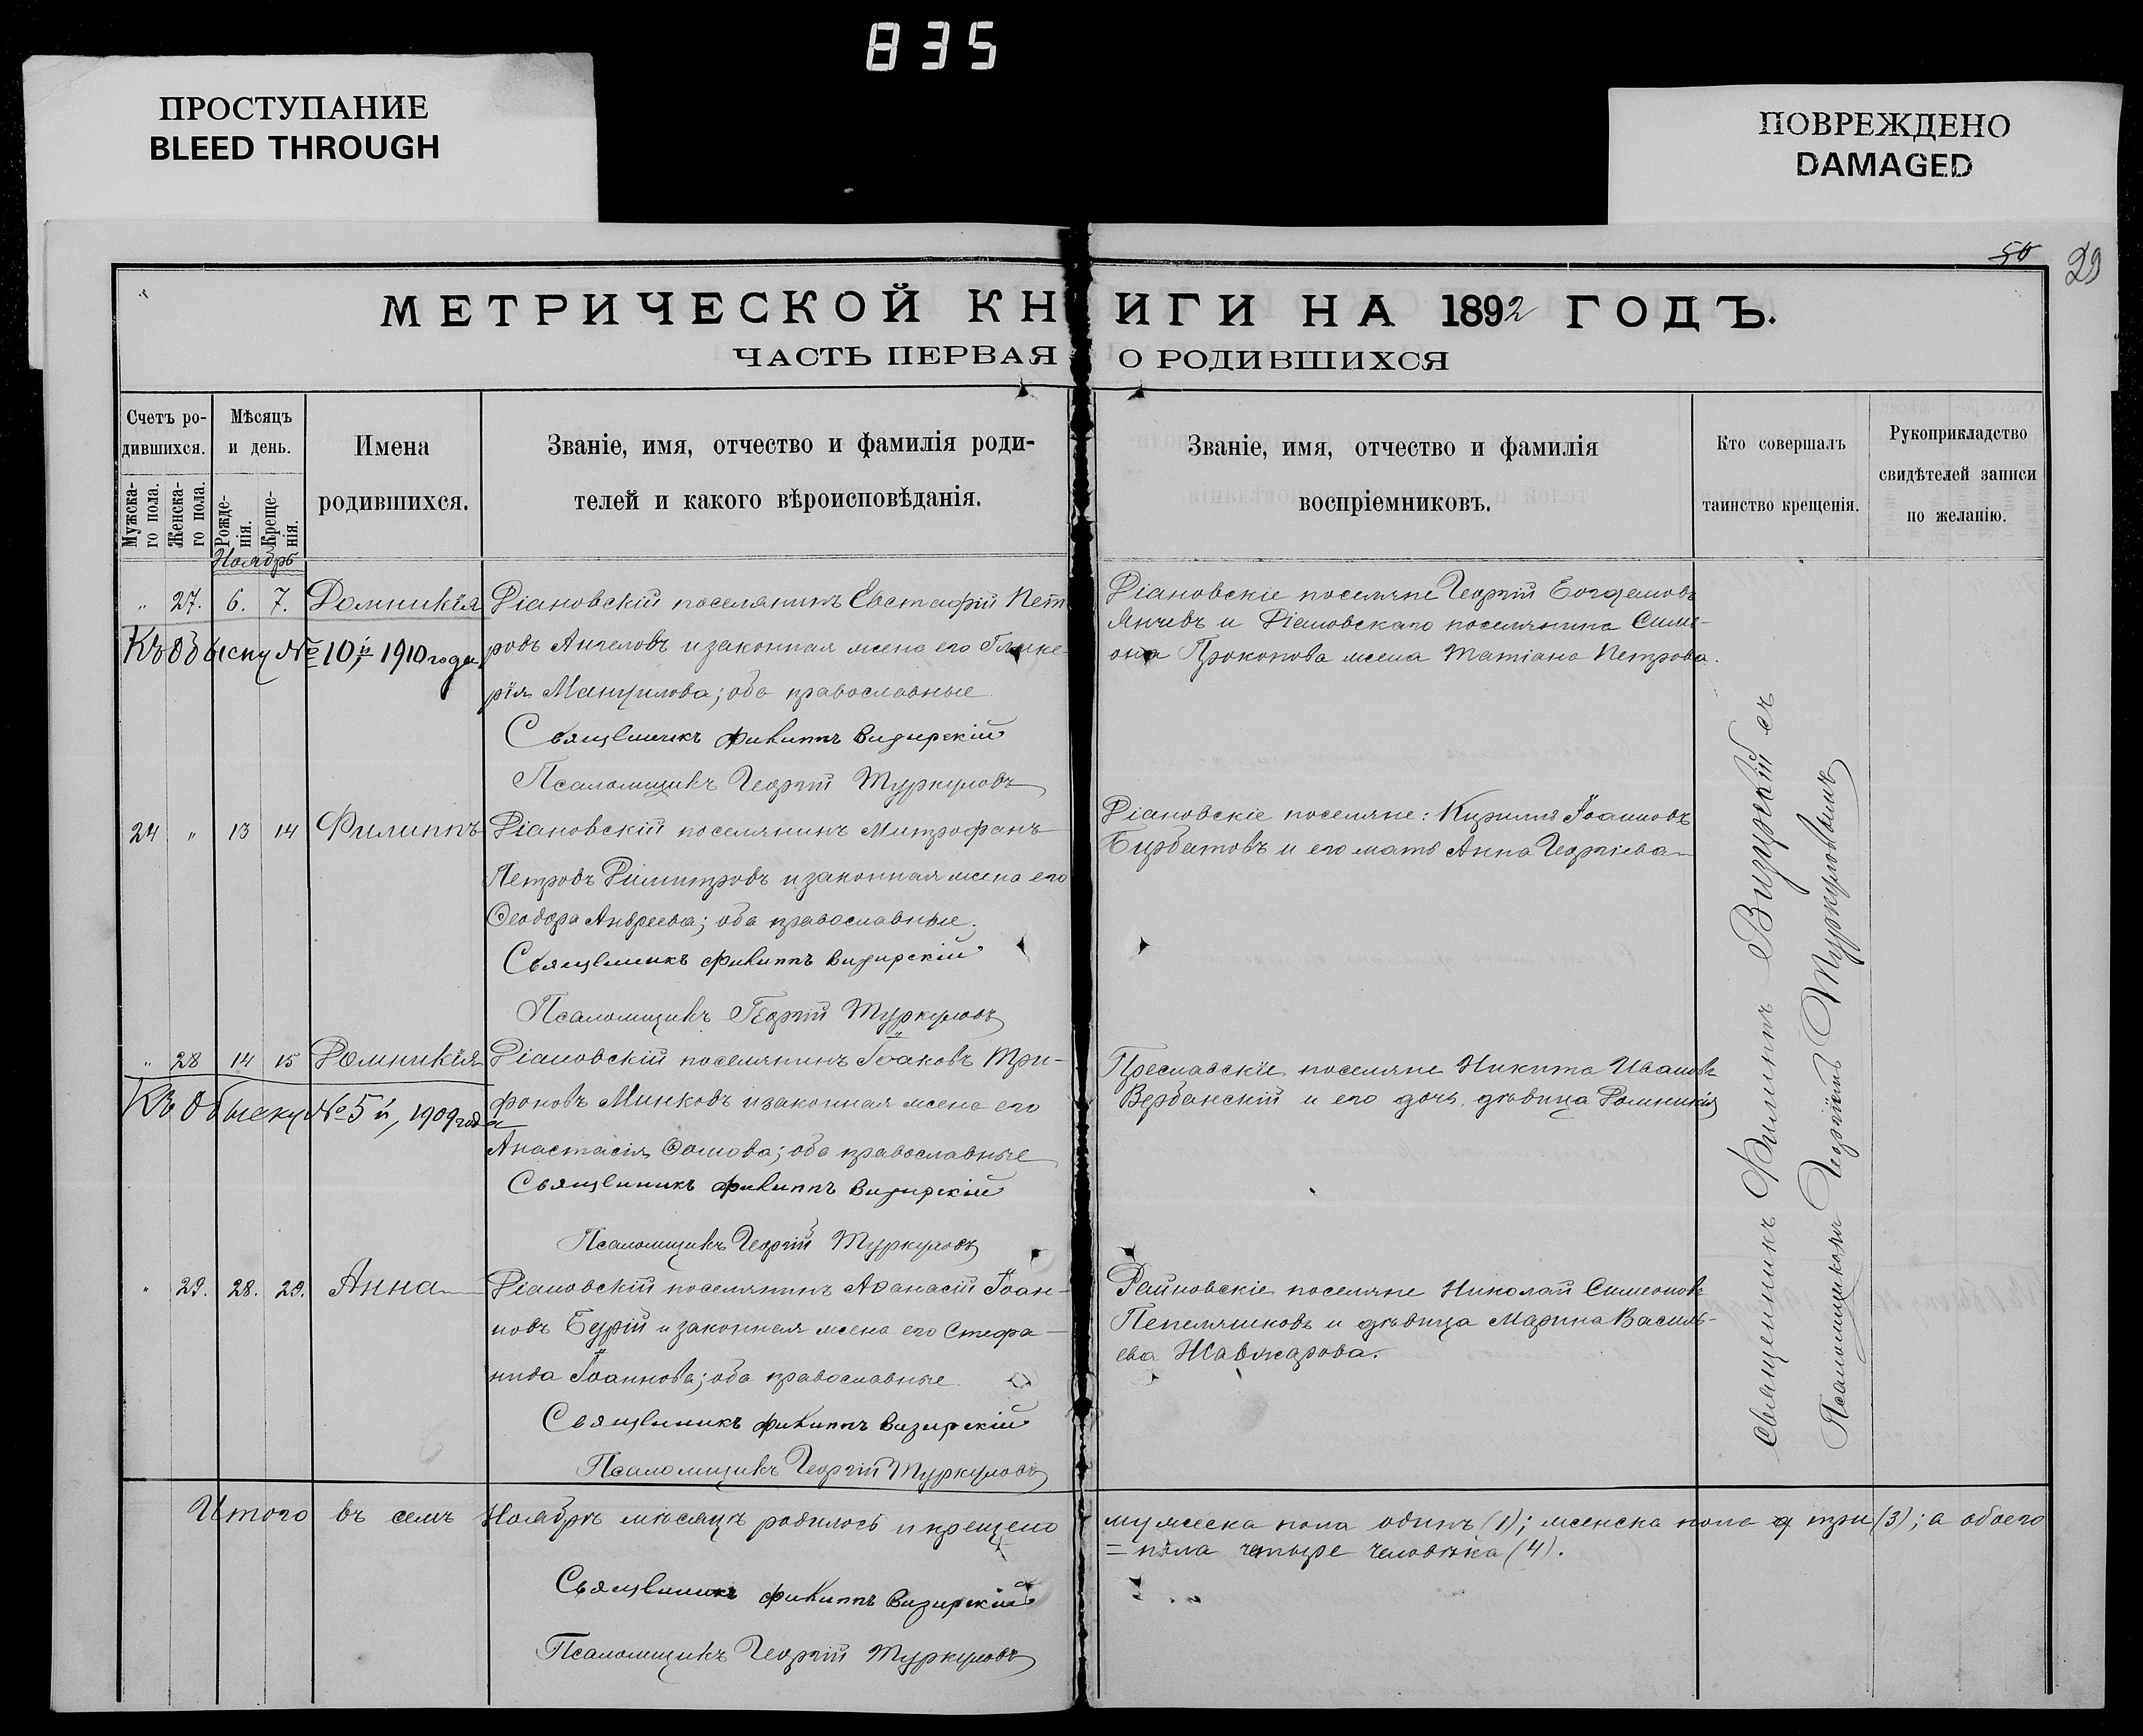 835
ПРОСТУПАНИЕ
BLEED THROUGH
ПОВРЕЖДЕНО
DAMAGED
50
29
МЕТРИЧЕСКОЙ КНИГИ НА 1892 ГОДЪ.
ЧАСТЬ ПЕРВАЯ О РОДИВШИХСЯ
Счетъ ро-
дившихся.
Мужска-
го пола.
Женска-
го пола.
Мѣсяцъ
и день.
Рожде-
нія.
Креще-
нія.
Имена
родившихся.
Званіе, имя, отчество и фамилія роди-
телей и какого вѣроисповѣданія.
Званіе, имя, отчество и фамилія
воспріемниковъ.
Кто совершалъ
таинство крещенія.
Рукоприкладство
свидѣтелей записи
по желанію.
Ноябрь
" 27. 6. 7. Домникія Діановскій поселянинъ Евстафій Пет
ровъ Ангеловъ и законная жена его Глике
рія Мануилова; оба православные
Къ обыску № 10й, 1910 года
Священникъ Филиппъ Визирскій
Псаломщикъ Георгій Туркуловъ
Діановскіе поселяне Георгій
Янчевъ и Діановскаго поселянина Симе-
она Прокопова жена Татіана Петрова.
24 " 13 14 Филиппъ Діановскій поселянинъ Митрофанъ
Петровъ Димитровъ и законная жена его
Ѳеодора Андреева; оба православные.
Священникъ Филиппъ Визирскій
Псаломщикъ Георгій Туркуловъ
Діановскіе поселяне: Кириллъ Іоанновъ
Бурбатовъ и его мать Анна Георгіева
" 28 14 15 Домникія Діановскій поселянинъ Іоаковъ Три-
фоновъ Минковъ и законная жена его
Анастасія Ѳомова; оба православные
Къ обыску № 5й, 1909 года
Священникъ Филиппъ Визирскій
Псаломщикъ Георгій Туркуловъ
Преславскіе поселяне Никита Ивановъ
Вербанскій и его дочь дѣвица Домникія
" 29. 28. 29. Анна Діановскій поселянинъ Аѳанасій Іоан-
новъ Бурій и законная жена его Стефа-
нида Іоаннова; оба православные.
Священникъ Филиппъ Визирскій
Псаломщикъ Георгій Туркуловъ
Райновскіе поселяне Николай Симеоновъ
Пепеляшковъ и дѣвица Марина Василь-
ева Жавжарова.
Священникъ Филиппъ Визирскій съ
Псаломщикомъ Георгіемъ Туркуловымъ
Итого въ семъ Ноябрѣ мѣсяцѣ родилось и крещено мужеска пола одинъ (1); женска пола три (3); а обоего
= пола четыре человѣка (4).
Священникъ Филиппъ Визирскій
Псаломщикъ Георгій Туркуловъ